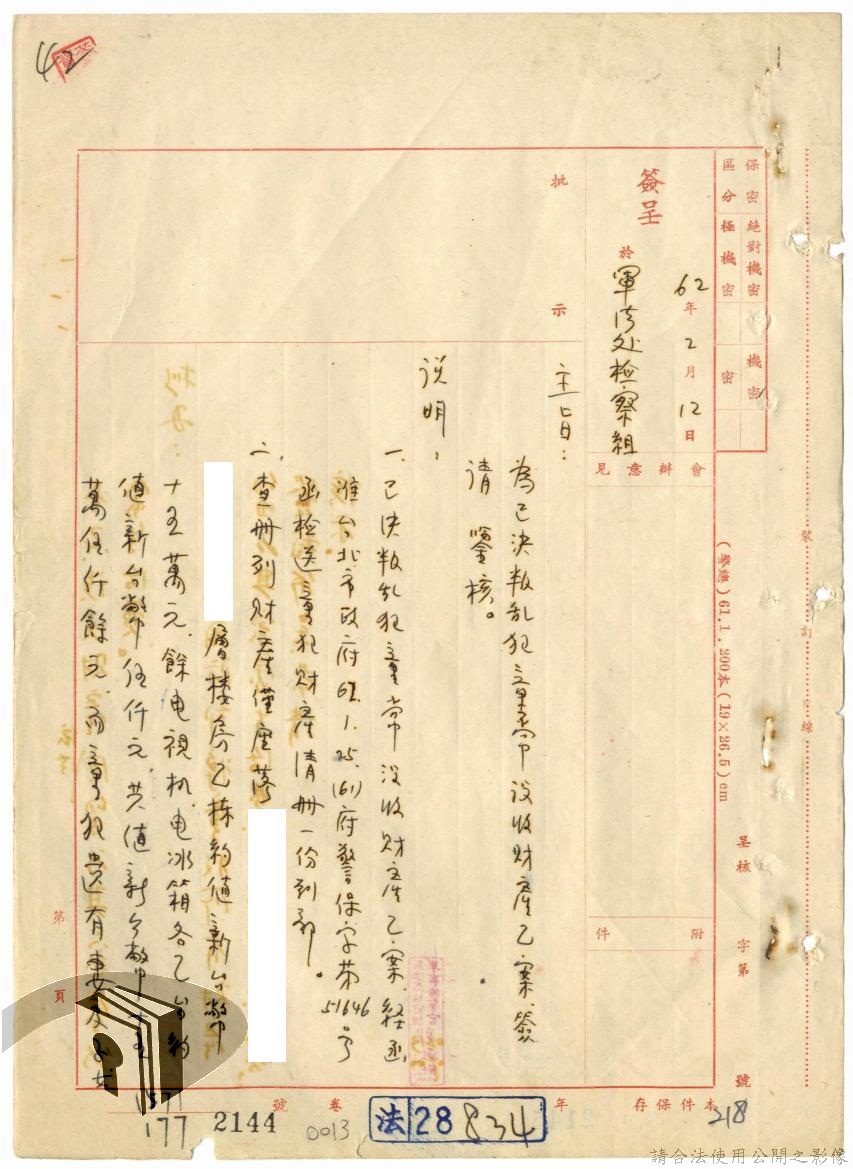 42
保密區分
絕對機密
極機密
機密
密
簽呈
於軍法处检察組
62年2月12日
批示
會辦意見
附件
主旨：
為已決叛乱犯童常没收财産乙案、簽
请鑒核。
说明：
一、已決叛乱犯童常没收财産乙案、経函
准台北市政府62.1.25.(61)府警保字苐51646号
函检送童犯财産清册一份到部。
二、查册列财産僅座落
層楼房乙栋約值新台幣
十五萬元、餘电視机、电冰箱各乙台約
值新台幣伍仟元、共值新台幣十五
萬伍仟餘元、而童犯遗有妻及子女
裝訂線
(警總)61.1.200本(19×26.5)cm
呈核 字第 號
本件保存 年
卷 號
第 頁
法 28 834
218
0013
2144
177
157
請合法使用公開之影像